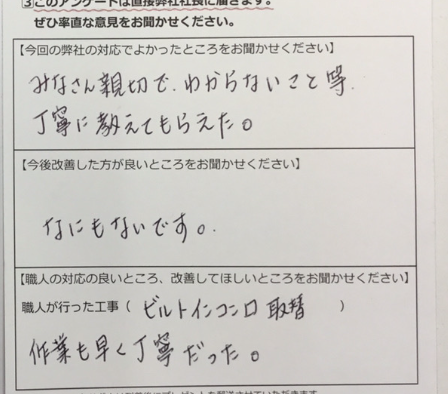 ③このアンケートは直接弊社社長に届きます。
ぜひ率直な意見をお聞かせください。
【今回の弊社の対応でよかったところをお聞かせください】
みなさん親切で、わからないこと等、
丁寧に教えてもらえた。
【今後改善した方が良いところをお聞かせください】
なにもないです。
【職人の対応の良いところ、改善してほしいところをお聞かせください】
職人が行った工事（ ビルトインコンロ 取替 ）
作業も早く丁寧だった。